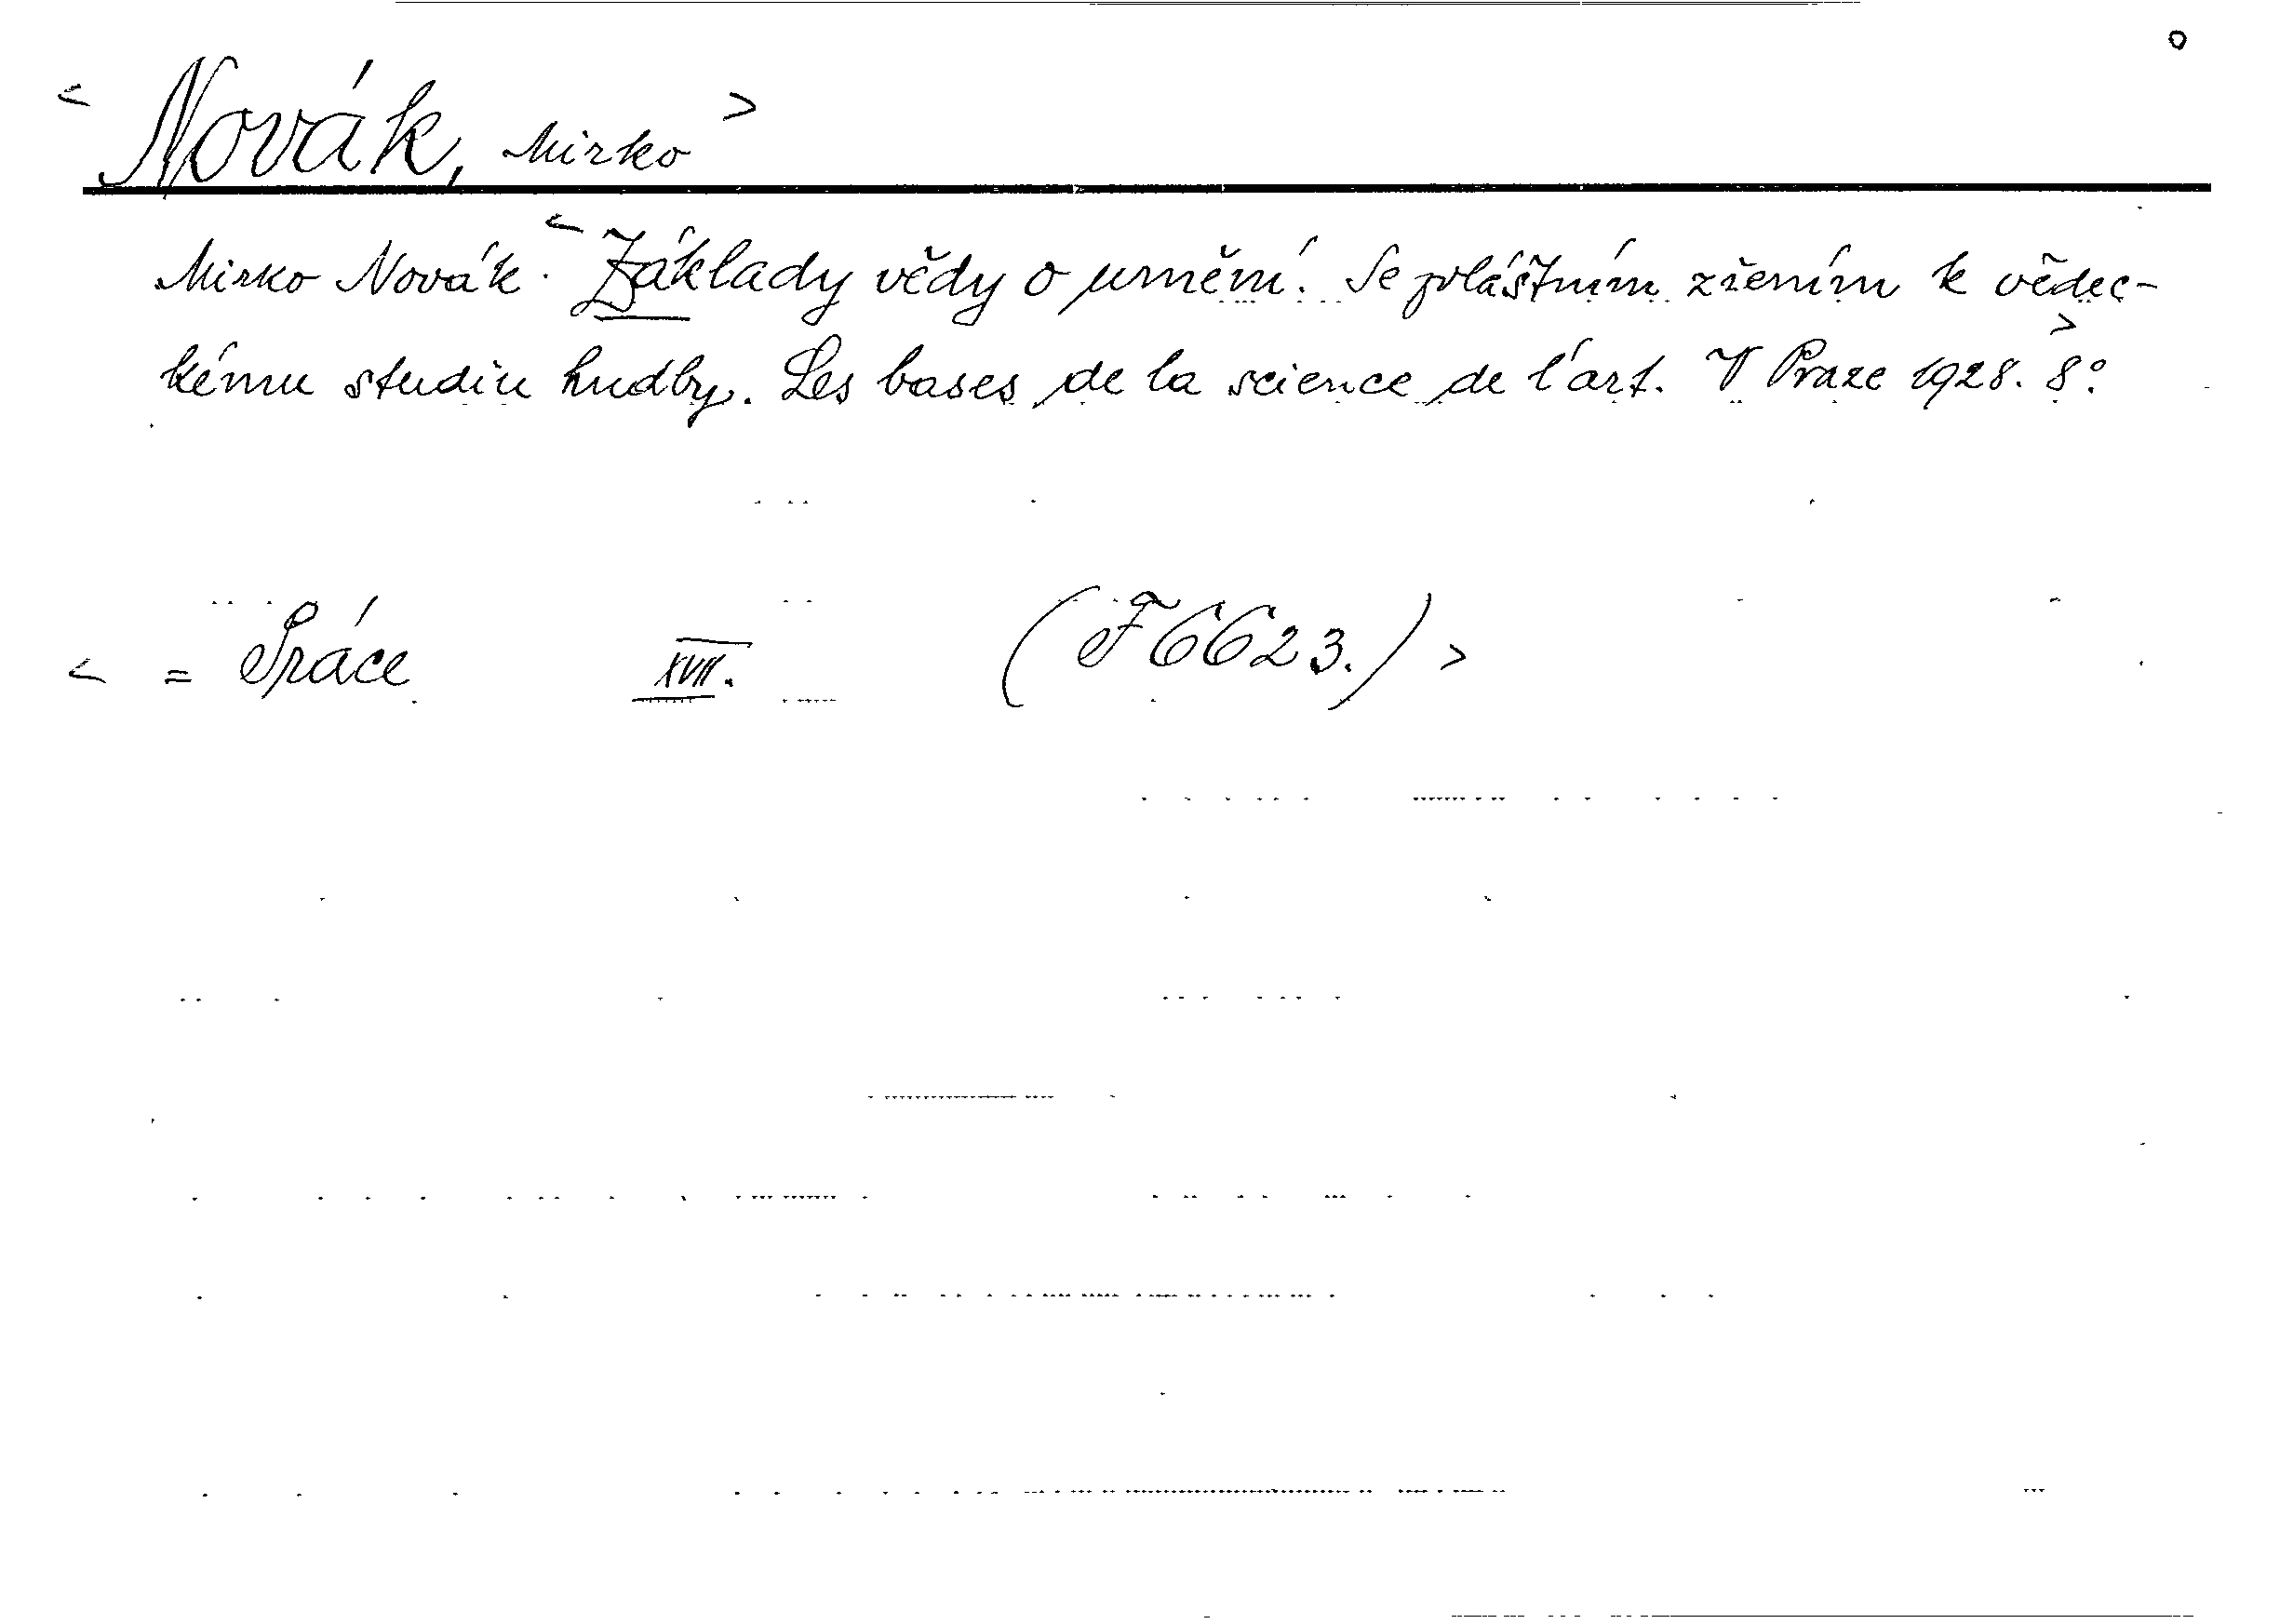 < Novák, Mirko >
Mirko Novák. < Základy vědy o umění. Se zvláštním zřením k vědec-
kému studiu hudby. Les bases de la science de l'art. V Praze 1928. > 8°.
< = Práce XVII. (F6623.) >